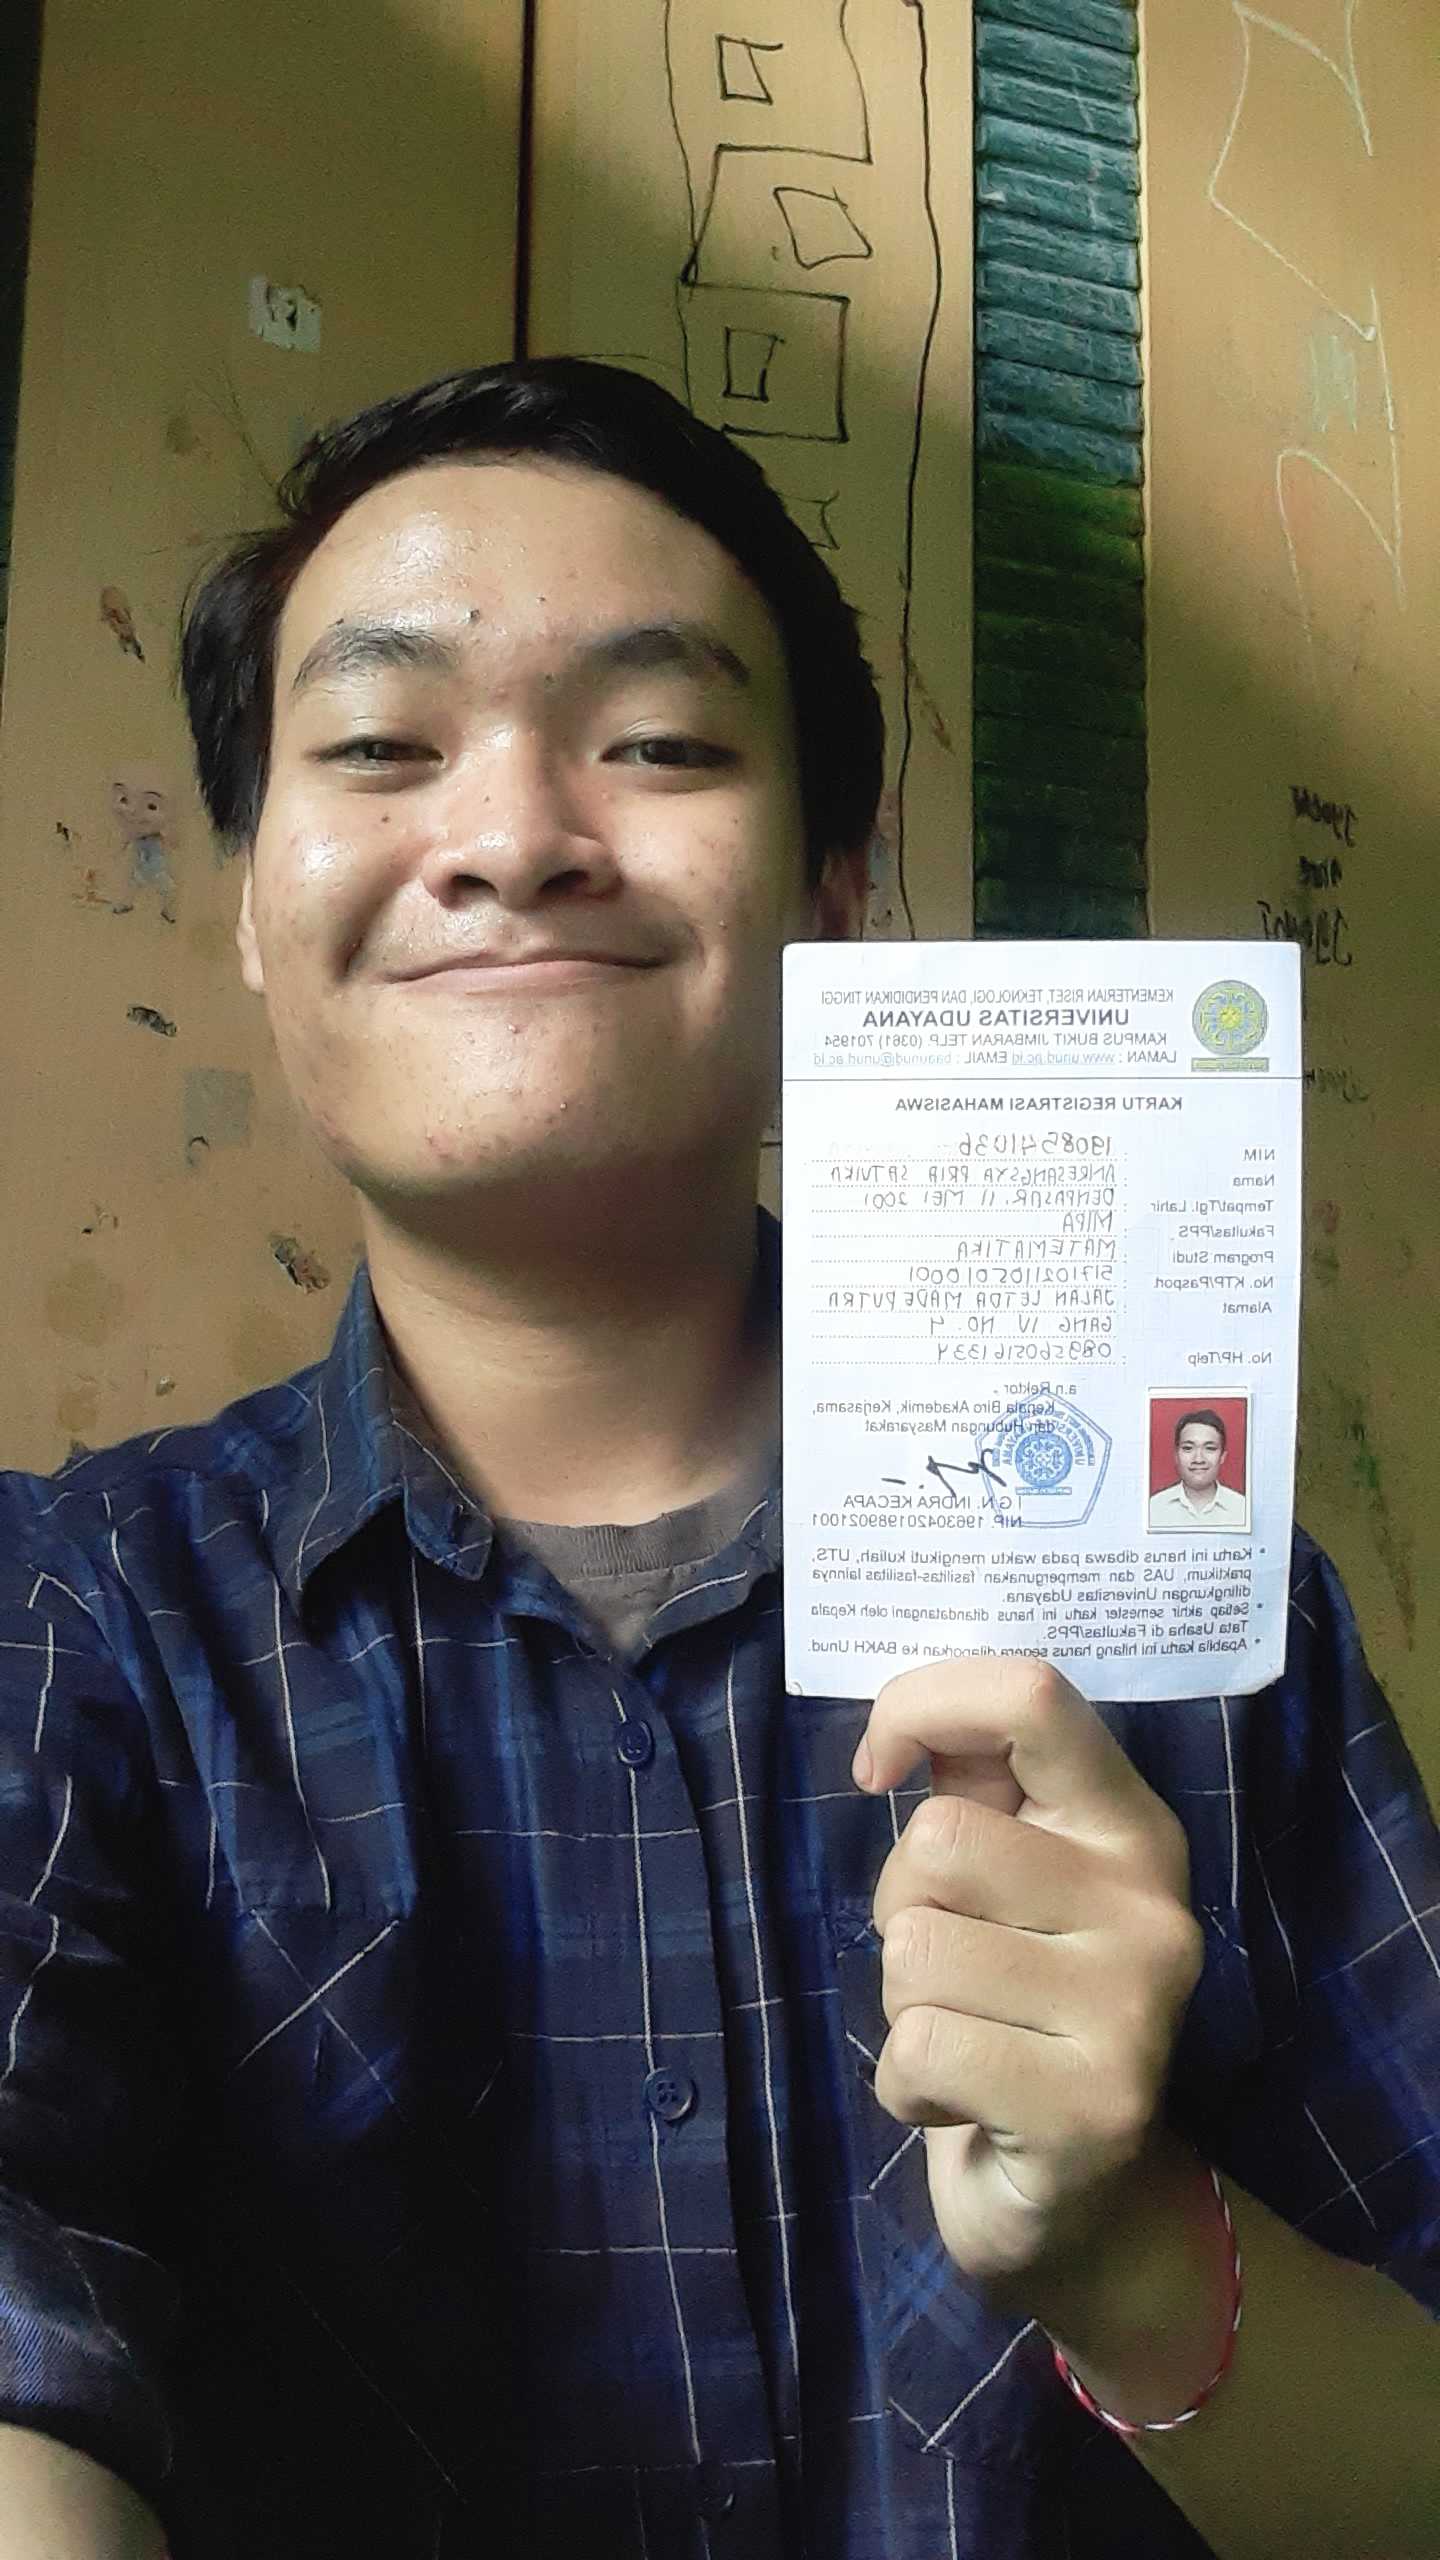 KEMENTERIAN RISET, TEKNOLOGI, DAN PENDIDIKAN TINGGI
UNIVERSITAS UDAYANA
KAMPUS BUKIT JIMBARAN TELP. (0361) 701954
LAMAN : www.unud.ac.id EMAIL : baaunud@unud.ac.id
KARTU REGISTRASI MAHASISWA
NIM : 1908541036
Nama : ANRESANGSYA PRIA SATVIKA
Tempat/Tgl. Lahir : DENPASAR, 11 MEI 2001
Fakultas/PPS. : MIPA
Program Studi : MATEMATIKA
No. KTP/Pasport : 5171021105010001
Alamat : JALAN LETDA MADE PUTRA
GANG IV NO. 4
No. HP/Telp : 0895605161334
a.n Rektor
Kepala Biro Akademik, Kerjasama,
dan Hubungan Masyarakat
I G N. INDRA KECAPA
NIP. 196304201989021001
* Kartu ini harus dibawa pada waktu mengikuti kuliah, UTS,
praktikum, UAS dan mempergunakan fasilitas-fasilitas lainnya
dilingkungan Universitas Udayana.
* Setiap akhir semester kartu ini harus ditandatangani oleh Kepala
Tata Usaha di Fakultas/PPS.
* Apabila kartu ini hilang harus segera dilaporkan ke BAKH Unud.